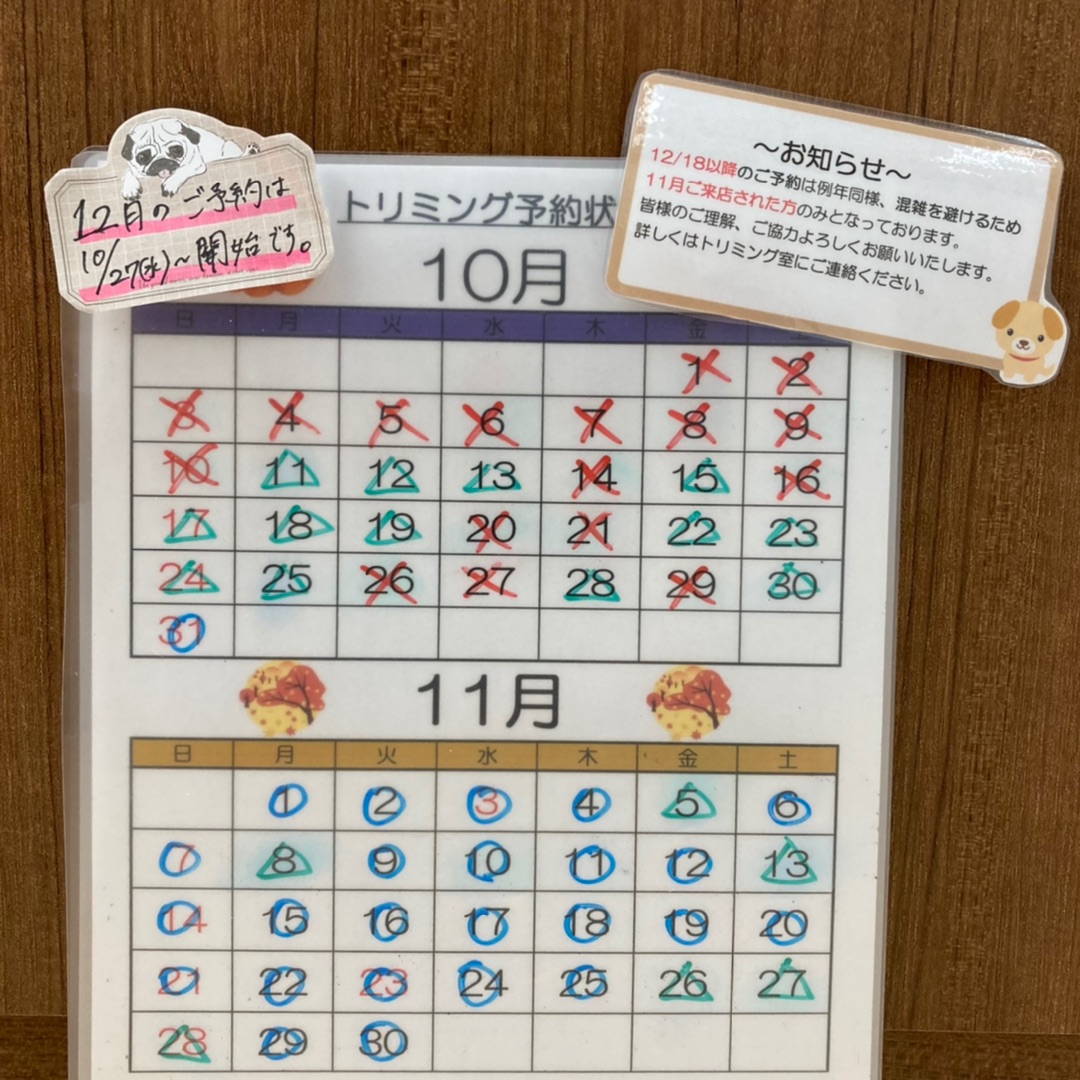 12月のご予約は
10/27(水)～開始です。
～お知らせ～
12/18以降のご予約は例年同様、混雑を避けるため
11月ご来店された方のみとなっております。
皆様のご理解、ご協力よろしくお願いいたします。
詳しくはトリミング室にご連絡ください。
トリミング予約状
10月
日 月 火 水 木 金 土
1 2
3 4 5 6 7 8 9
10 11 12 13 14 15 16
17 18 19 20 21 22 23
24 25 26 27 28 29 30
31
11月
日 月 火 水 木 金 土
1 2 3 4 5 6
7 8 9 10 11 12 13
14 15 16 17 18 19 20
21 22 23 24 25 26 27
28 29 30